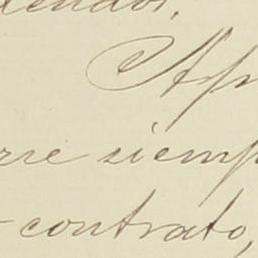 endos.
Ap
rre siemp
contrato,